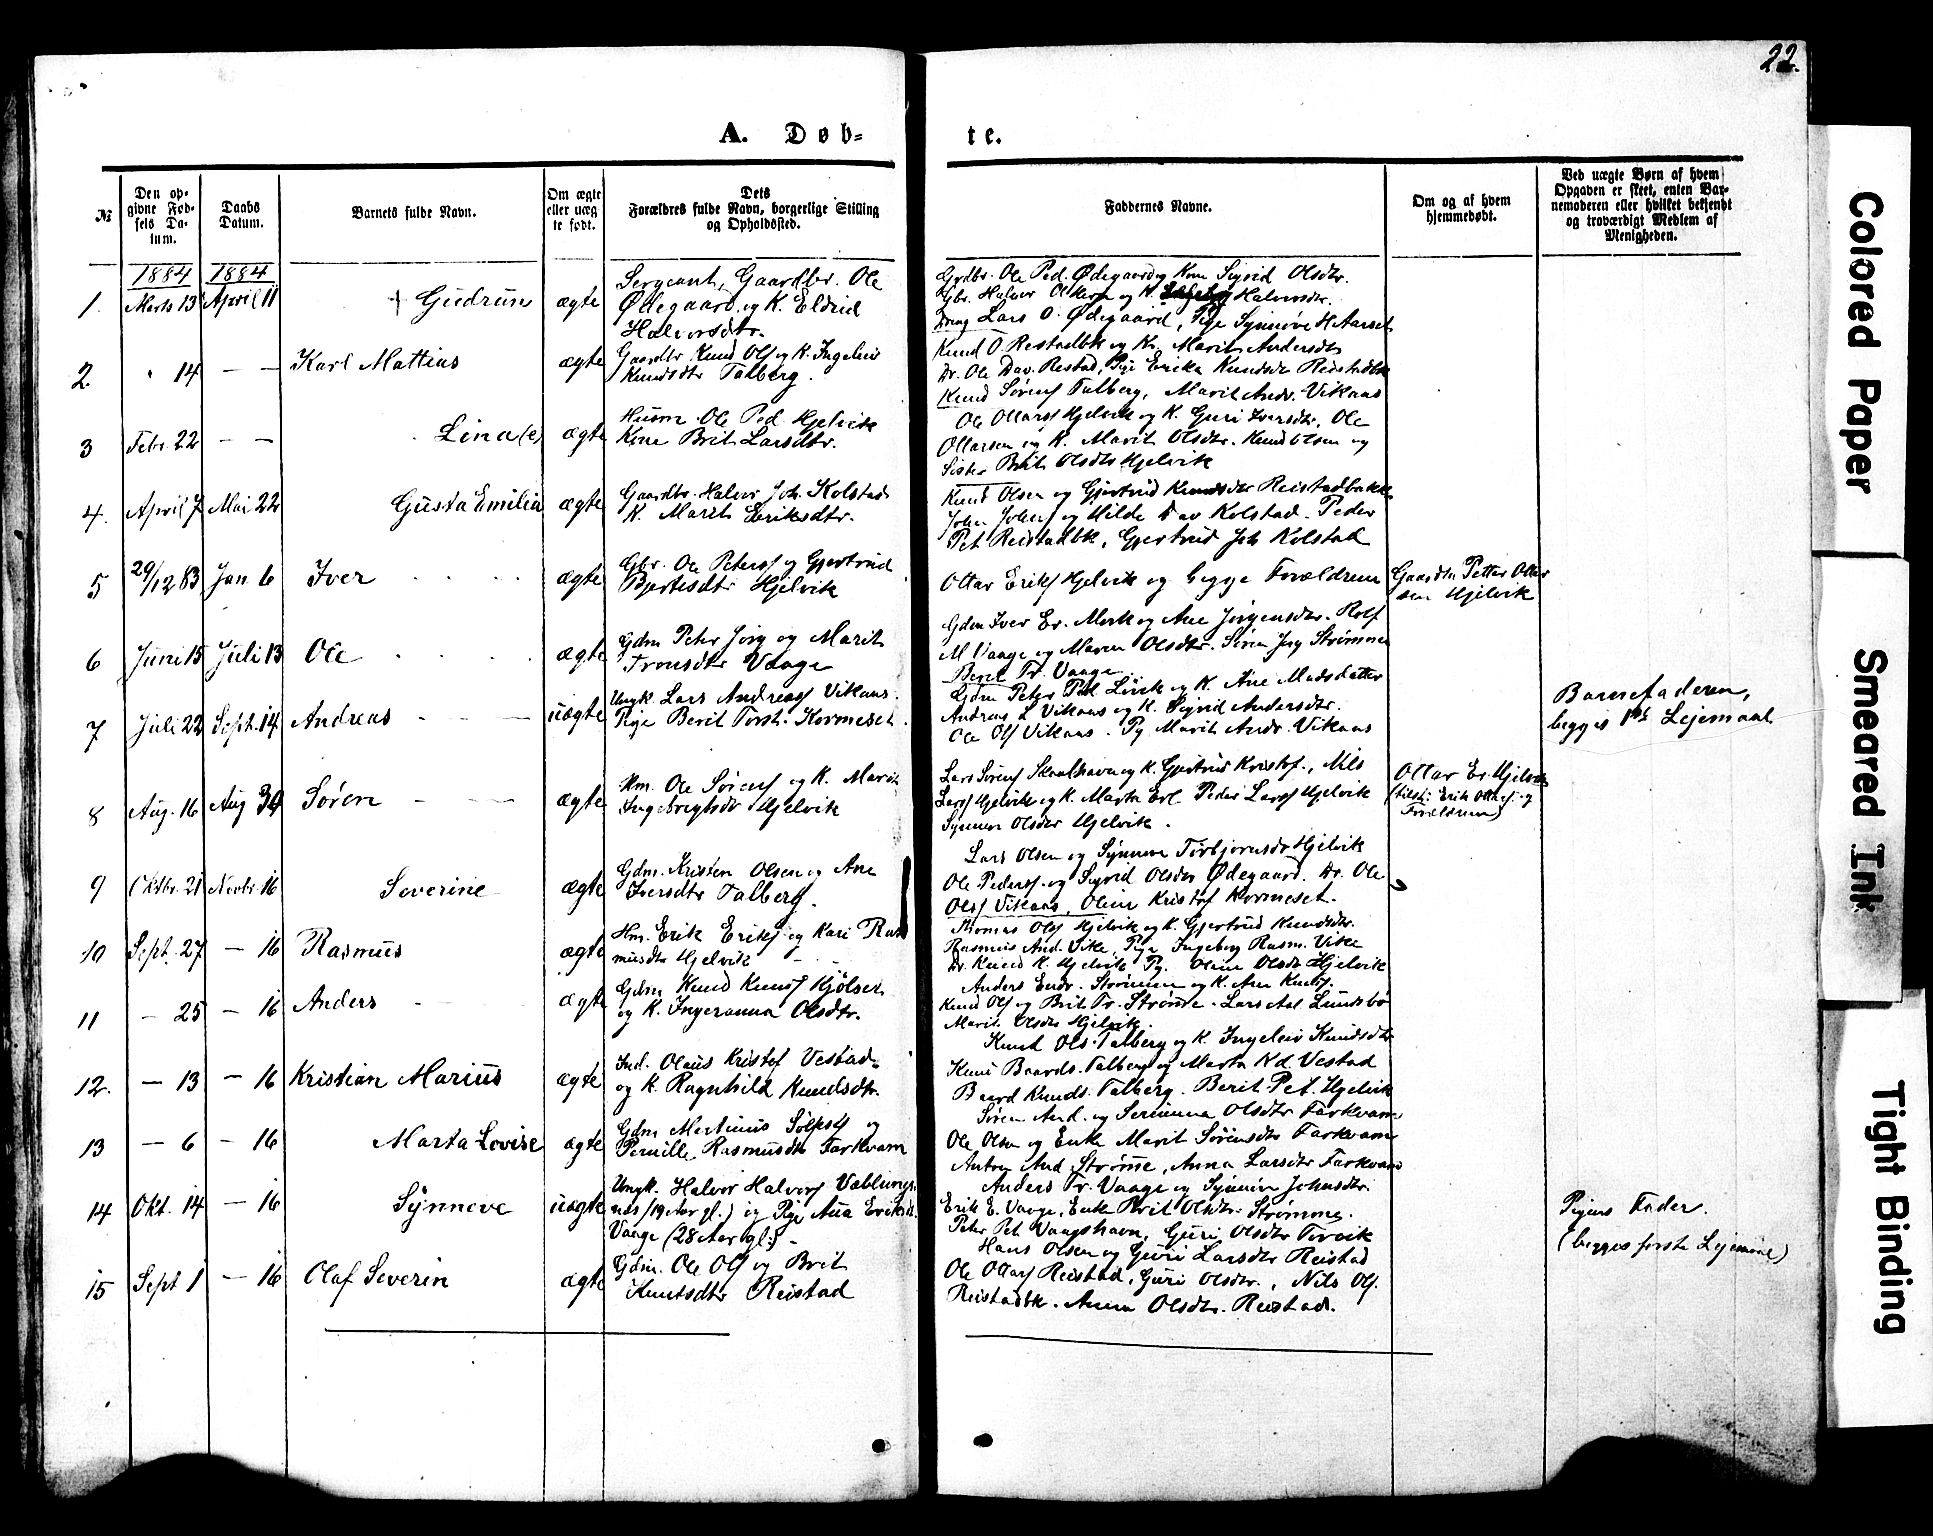 22.
A. Døb-
te.
№
Den op-
givne Fød-
sels Da-
tum.
Daabs
Datum.
Barnets fulde Navn.
Om ægte
eller uæg-
te født.
Dets
Forældres fulde Navn, borgerlige Stilling
og Opholdssted.
Faddernes Navne.
Om og af hvem
hjemmedøbt.
Ved uægte Børn af hvem
Opgaven er skeet, enten Bar-
nemoderen eller hvilket bekjendt
og troværdigt Medlem af
Menigheden.
1884 1884
1. Marts 13 April 11 Gudrun ægte
Sergeant, Gaardbr. Ole
Ødegaard og K. Eldrid
Halvorsdtr.
Grdbr. Ole Ped. Ødegaard og Kone Sigrid Olsdtr.
Gbr. Halvor og K. Halvorsdtr.
Dreng Lars O. Ødegaard, Pige Synnøve H Aarset
2. " 14 — — Karl Mattias ægte
Gaardbr Knud Ols og K. Ingeleiv
Knudsdtr Talberg.
Knud O Reistadbk og K. Marit Andersdtr
Dr. Ole Dav. Restad, Pige Erika Knudsdr Reistadbk
Knud Sørens Talberg, Marit Andr. Vikaas
3 Febr 22 — — Lina (e) ægte
Husm. Ole Ped Hjelvik
Kone Brit Larsdtr.
Ole Ottars Hjelvik og K. Guri Iversdtr, Ole
Ottarsen og K. Marit Olsdtr. Knud Olsen og
Søster Brit Olsdtr Hjelvik
4. April 7 Mai 22 Gusta Emilia ægte
Gaardbr. Halvor Joh. Kolstad
K. Marit Eriksdtr.
Knud Olsen og Gjertrud Knudsdtr Reistadbakk
John Johns og Hilde Dav Kolstad. Peder
Pet Reistadbk, Gjertrud Joh Kolstad
5 29/12 83 Jan 6 Iver ægte
Gbr. Ole Peters og Gjertrud
Bjertesdtr Hjelvik
Ottar Eriks Hjelvik og begge Forældrene
Gaardbr Petter Ottar
sen Hjelvik
6 Juni 15 Juli 13 Ole ægte
Gdm Peter Jørg og Marit
Tronsdtr Vaage
Gdm Iver Er. Mork og Ane Jørgensdtr. Rolf
M Vaage og Maren Olsdtr. Søren Jørg Strømme
Berit Tr. Vaage
7 Juli 22 Sept. 14 Andreas uægte
Ungk. Lars Andreas Vikaas.
Pige Berit Torst. Kormeset.
Gdm Peter Pet. Livik og K. Ane Madsdatter
Andreas L Vikaas og K. Sigrid Andersdtr.
Ole Ols Vikaas. Pg. Marit Andr. Vikaas
Barnefaderen,
begges 1ste Lejemaal
8 Aug. 16 Aug 30 Søren ægte
Hm. Ole Sørens og K. Marit
Ingebrigtsdt Hjelvik
Lars Sørens Skaalhavn og K. Gjertrud Kristof., Nils
Lars Hjelvik og K. Marta Erl. Peder Lars Hjelvik
Synnøve Olsdtr Hjelvik.
Ottar Er. Hjelvik
(tilst: Erik Ottars. og
Forældrene)
9 Oktbr. 21 Novbr. 16 Severine ægte
Gdm. Kristen Olsen og Ane
Iversdtr Talberg.
Lars Olsen og Synnøve Torbjørnsdtr Hjelvik
Ole Peders. og Sigrid Olsdtr Ødegaard. Dr. Ole
Ols Vikaas, Oline Kristof Kormeset.
10 Sept. 27 — 16 Rasmus ægte
Hm. Erik Eriks og Kari Ras
musdtr Hjelvik
Thomas Ols Hjelvik og K. Gjertrud Knudsdtr.
Rasmus And. Vike, Pige Ingeborg Rasm. Vike
Dr. Knud K. Hjelvik, Pg. Oline Olsdtr Hjelvik
11 — 25 — 16 Anders ægte
Gdm Knud Knuds Hjølset
og K. Ingeranna Olsdtr.
Anders Endr. Strømme og K. Ane Knuds.
Knud Ols og Brit Tr. Strømme. Lars Aal Lundsbø
Marit Olsdtr Hjelvik.
12. — 13 — 16 Kristian Marius ægte
Ind. Olaus Kristof Vestad
og K Ragnhild Knudsdtr.
Knud Ols. Talberg og K. Ingeleiv Knudsdtr
Knud Baards. Talberg og Marta Nd. Vestad
Baard Knuds. Talberg. Berit Pet. Hjelvik
13 — 6 — 16 Marta Lovise ægte
Gdm Martinus Sølfests og
Pernille Rasmusdtr Farkvam
Søren And. og Serianna Olsdtr Farkvam
Ole Olsen og Enke Marit Sørensdtr Farkvam
Anton And Strømme, Anna Larsdtr Farkvam
14 Okt. 14 — 16 Synneve uægte
Ungk. Halvor Halvors Væblungs
nes (19 Aar gl.) og Pige Ana Eriksdt.
Vaage (28 Aar gl.) -
Anders Tr. Vaage og Synnøve Johnsdtr.
Erik E. Vaage, Enke Brit Olsdtr Strømme.
Peter Pet Vaagshavn, Guri Olsdtr Torvik
Pigens Fader.
(begges første Lejemaal)
15 Sept 1 — 16 Olaf Severin ægte
Gdm. Ole Ols og Brit
Knutsdtr Reistad
Hans Olsen og Guri Larsdtr Reistad
Ole Ottars Reistad, Guri Olsdtr., Nils Ols.
Reistadbk. Anna Olsdtr. Reistad.
Colored Paper
Smeared Ink
Tight Binding